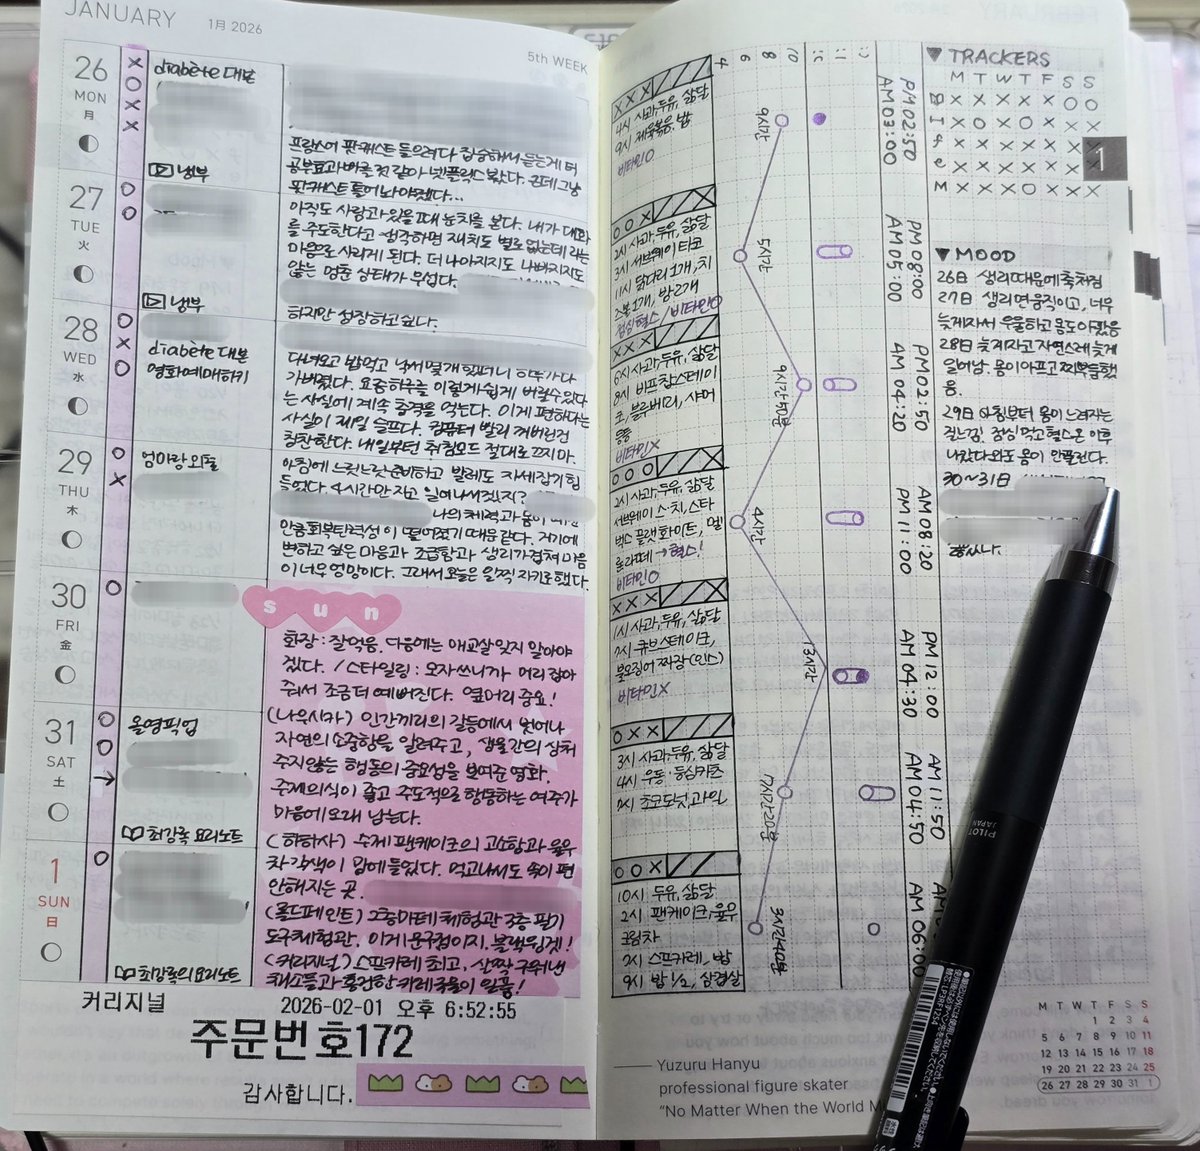 JANUARY 1月 2026
5th WEEK
26
MON
月
diabète 대본
냉부
프랑스어 팟캐스트 들으려다 집중해서 듣는게 더
공부효과 빠를 것 같아 넷플릭스 봤다. 근데 그냥
팟캐스트 틀어놔야겠다...
27
TUE
火
냉부
아직도 사람과 있을 때 눈치를 본다. 내가 대화
를 주도한다고 생각하면 재치도 별로 없는데 라는
마음으로 사리게 된다. 더 나아지지도 나빠지지도
않는 멈춘 상태가 무섭다.
하지만 성장하고 싶다.
28
WED
水
diabète 대본
영화예매하기
다녀오고 밥먹고 낙서 몇개 했더니 하루가 다
가버렸다. 요즘 하루를 이렇게 쉽게 버릴 수 있다
는 사실에 계속 충격을 먹는다. 이게 편하다는
사실이 제일 슬프다. 컴퓨터 빨리 꺼버린건
칭찬한다. 내일부턴 취침모드 절대 끄지 마.
29
THU
木
엄마랑 외출
아침에 느릿느릿 준비하고 발레도 자세잡기 힘
들었다. 4시간만 자고 일어나서겠지?
나의 체력과 몸이
만큼 회복탄력성이 떨어졌기 때문 같다. 거기에
변하고 싶은 마음과 조급함과 생리가 겹쳐 마음
이 너무 엉망이다. 그래서 오늘은 일찍 자기로 했다.
30
FRI
金
sun
화장: 잘먹음. 다음에는 애교살 잊지 말아야
겠다. / 스타일링: 모자쓰니까 머리 잡아
줘서 조금 더 예뻐진다. 옆머리 중요!
31
SAT
土
올영픽업
최강록 요리노트
(나우시카) 인간끼리의 갈등에서 벗어나
자연의 소중함을 알려주고, 생물간의 상처
주지않는 행동의 중요성을 보여준 영화.
주제의식이 좋고 주도적으로 행동하는 여주가
마음에 오래 남는다.
1
SUN
日
최강록의 요리노트
(하하사) 수제 팬케이크의 고소함과 율무
차 감색이 맘에 들었다. 먹고나서도 속이 편
안해지는 곳.
(몰드페인트) 2층 마테 체험관 3층 필기
도구체험관. 이게 문구점이지. 블랙윙겟!
(커리지널) 스프카레 최고. 살짝 구워낸
채소들과 훌륭한 카레국물이 일품!
커리지널 2026-02-01 오후 6:52:55
주문번호172
감사합니다.
4 6 8 10
XXX
4시 사과,두유,삶달
9시 제육볶음,밥
비타민O
9시간
PM 02:50
AM 03:00
OOX
2시 사과,두유,삶달
3시 서브웨이 터코
11시 닭다리 1개, 치
즈볼 1개, 빵 2개
점심혈스 / 비타민O
5시간
PM 08:00
AM 05:00
XXX
6시 사과,두유,삶달
8시 비프찹스테이
크, 블루베리, 샤머
비타민X
9시간50분
PM 02:50
AM 04:20
OOX
2시 사과,두유,삶달
서브웨이 스·치, 스타
벅스 플랫 화이트, 멜
론라떼 → 혈스!
비타민O
4시간
AM 08:20
PM 11:00
XXX
1시 사과,두유,삶달
7시 큐브스테이크,
불오징어 짜장(인스)
비타민X
13시간
PM 12:00
AM 04:30
XXX
3시 사과,두유,삶달
4시 우동·등심카츠
9시 초코도넛,과일
7시간20분
AM 11:50
AM 04:50
OOX
10시 두유,삶달
2시 팬케이크,율무
크림차
7시 스프카레, 밥
9시 밥 1/2, 삼겹살
AM 06:00
▼TRACKERS
M T W T F S S
X X X X X O O
I X O X O X X X
X X X X X X X
e X X X X X X X
M X X X O X X X
1
▼MOOD
26日 생리때문에 축처짐
27日 생리면 움직이고, 너무
늦게자서 우울하고 몸도 아팠음
28日 늦게자고 자연스레 늦게
일어남. 몸이 아프고 찌뿌듬했
음.
29日 아침부터 몸이 느려지는
걸 느낌. 점심 먹고 혈스온 이후
나갔다와도 몸이 안풀린다.
30~31日
좋았다.
PILOT
JAPAN
M T W T F S S
1 2 3 4
5 6 7 8 9 10 11
12 13 14 15 16 17 18
19 20 21 22 23 24 25
26 27 28 29 30 31 1
Yuzuru Hanyu
professional figure skater
"No Matter When the World